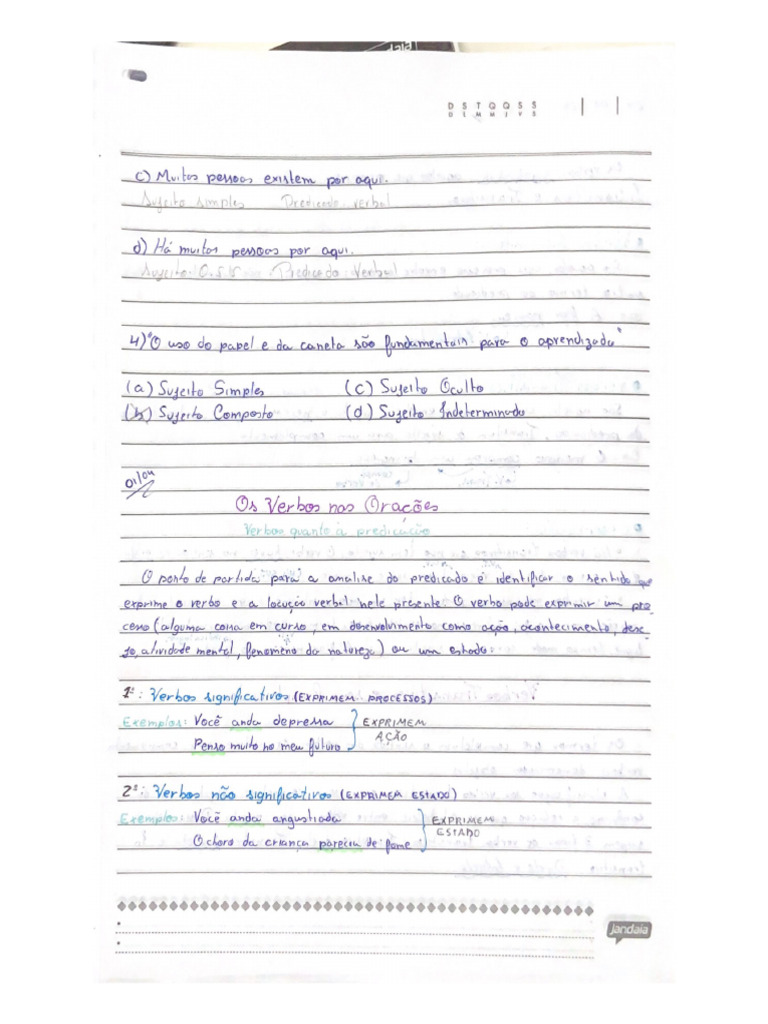 daia
D S T Q Q S S
D L M M J V S
c) Muitas pessoas existem por aqui.
Sujeito simples Predicado verbal
d) Há muitas pessoas por aqui.
Sujeito O.S.S Predicado Verbal
4) "O uso do papel e da caneta são fundamentais para o aprendizado"
(a) Sujeito Simples (c) Sujeito Oculto
(b) Sujeito Composto (d) Sujeito Indeterminado
01/04
Os Verbos nas Orações
Verbos quanto à predicação
O ponto de partida para a analise do predicado é identificar o sentido que
exprime o verbo e a locução verbal nele presente. O verbo pode exprimir um pro
cesso (alguma coisa em curso, em desenvolvimento como ação, acontecimento, dese
jo, atividade mental, fenomeno da natureza) ou um estado:
1º: Verbos significativos (EXPRIMEM PROCESSOS)
Exemplos: Você anda depressa
EXPRIMEM
AÇÃO
Penso muito no meu futuro
2º: Verbos não significativos (EXPRIMEM ESTADO)
Exemplos: Você anda angustiada
EXPRIMEM
ESTADO
O choro da criança parecia de fome
jandaia